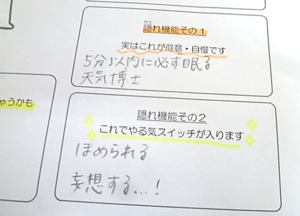 隠れ機能その1
実はこれが得意・自慢です
5分以内に必ず眠る
天気博士
ゃうかも
隠れ機能その2
これでやる気スイッチが入ります
ほめられる
妄想する…!